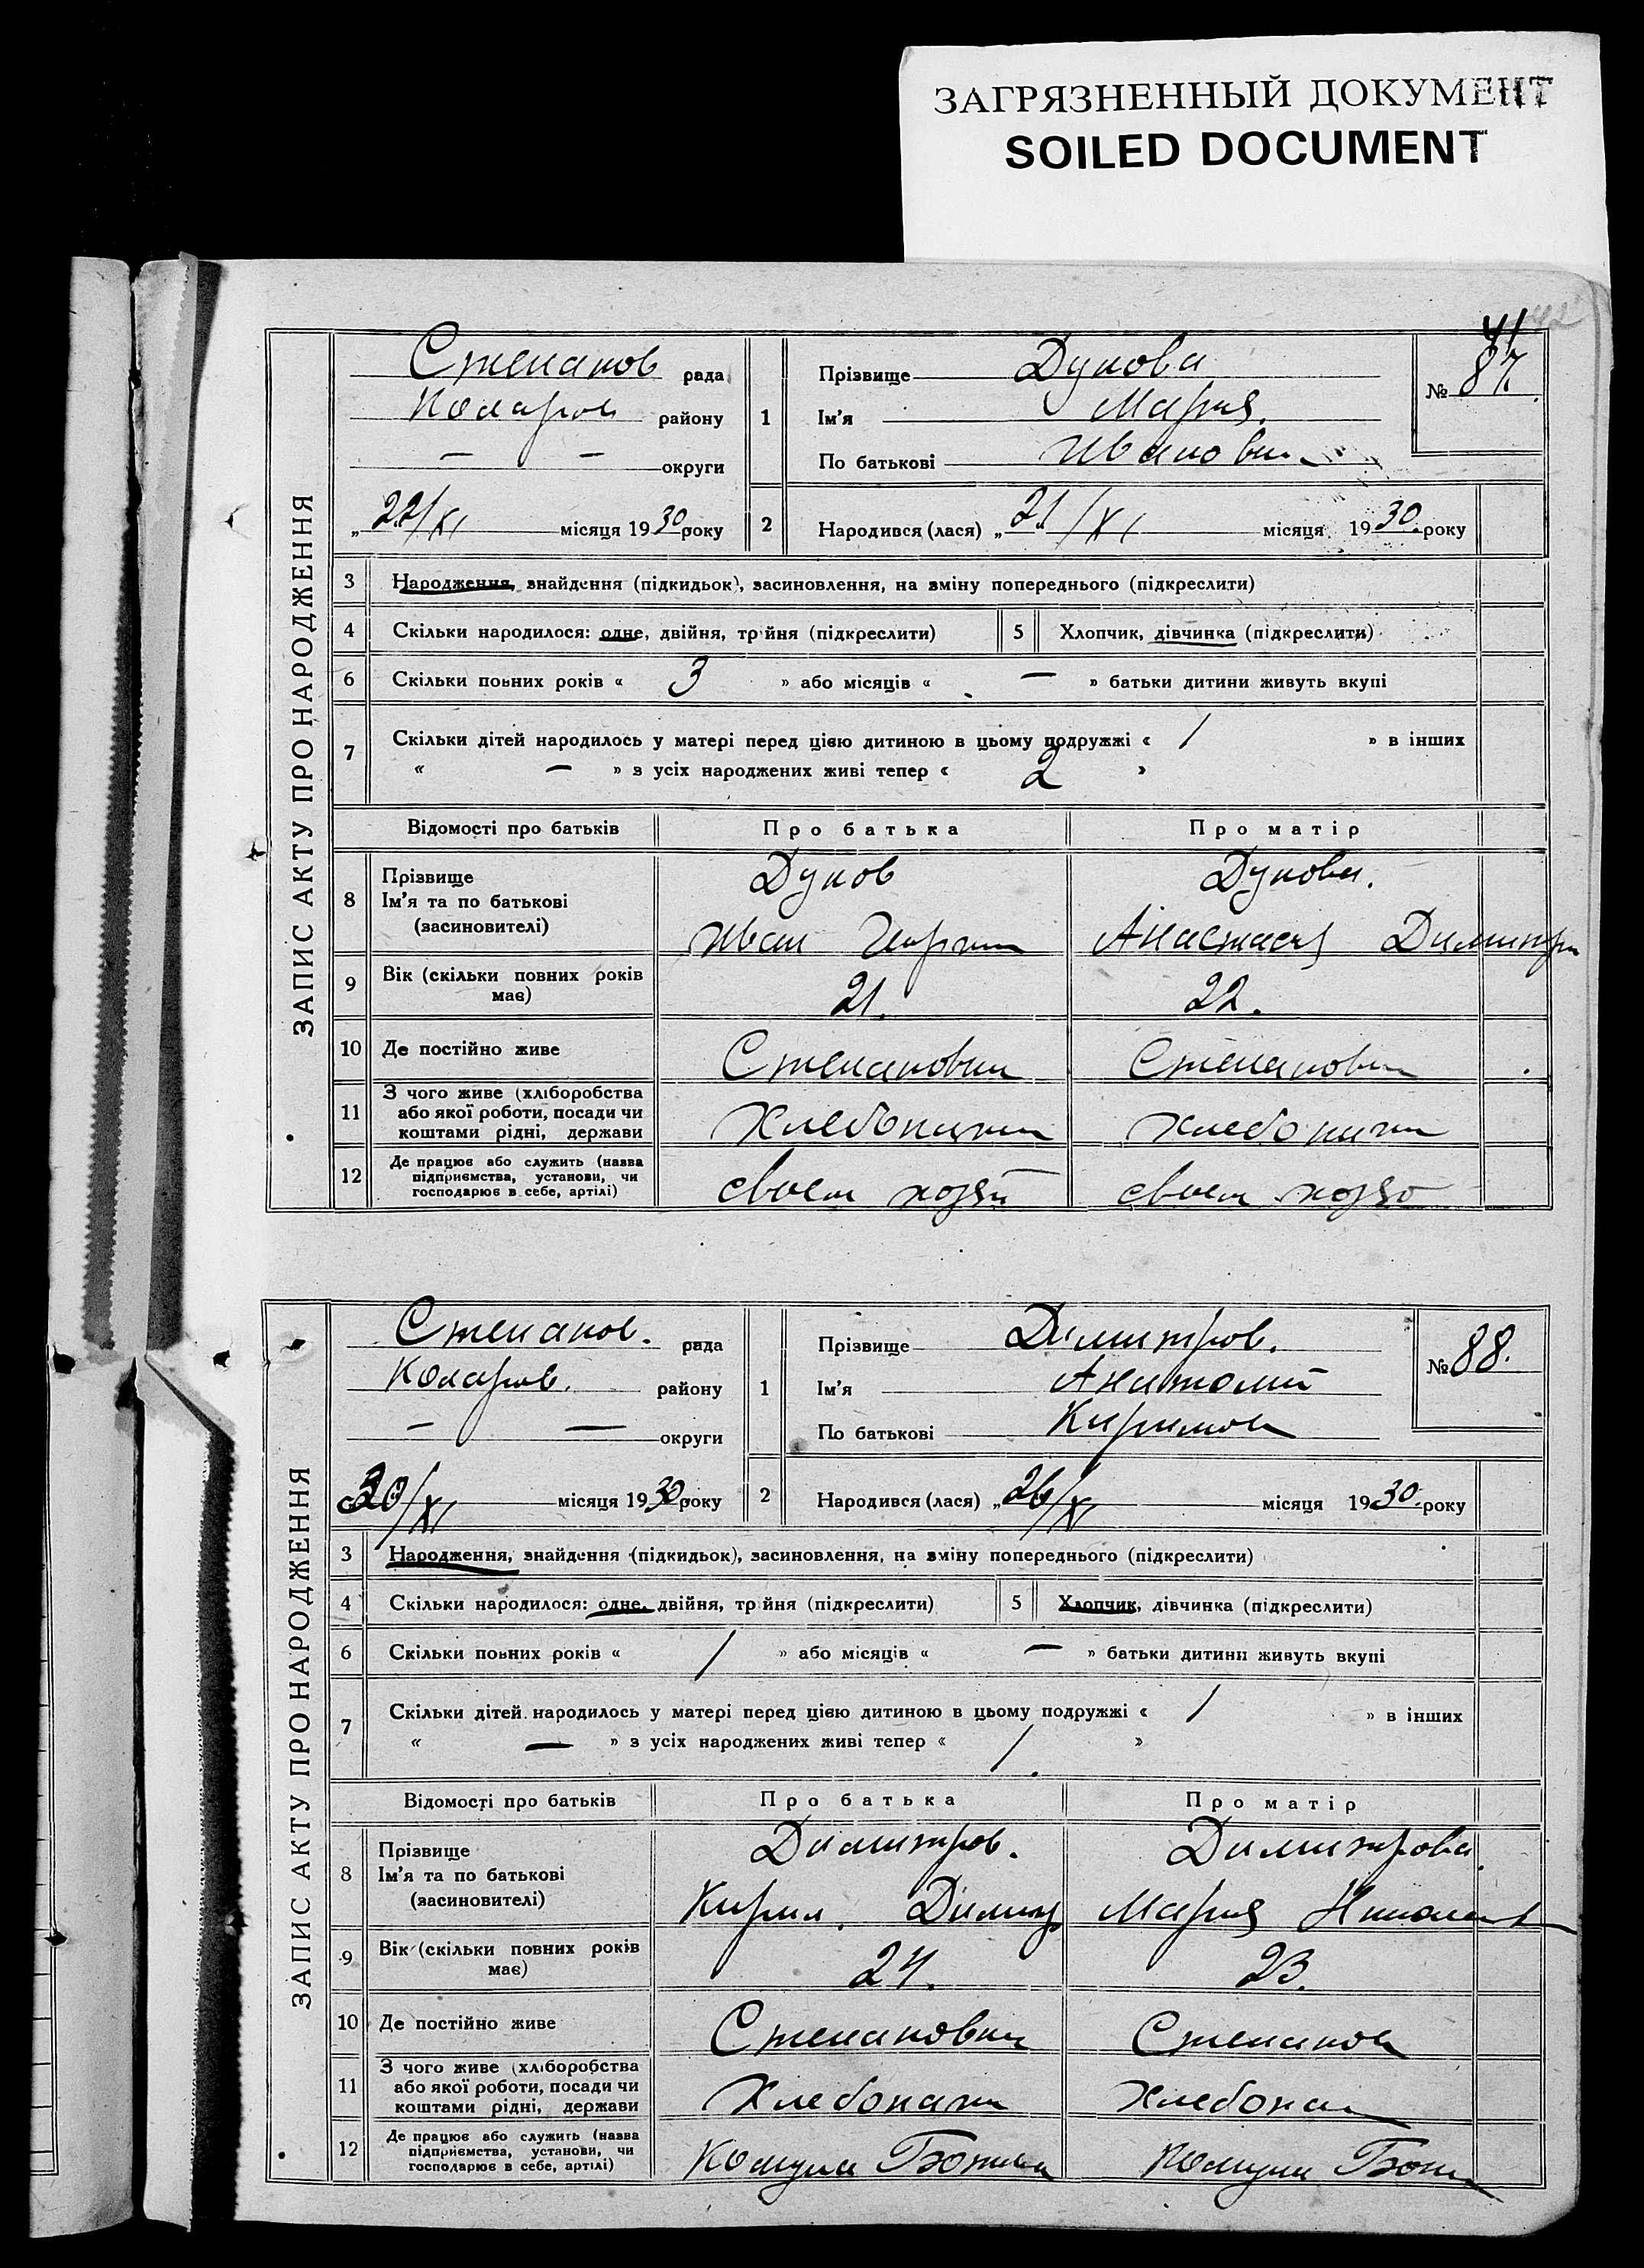 ЗАГРЯЗНЕННЫЙ ДОКУМЕНТ
SOILED DOCUMENT
41
ЗАПИС АКТУ ПРО НАРОДЖЕННЯ
Степанов рада
Коларов району
— — округи
„22/XI місяця 1930 року
1 Прізвище Дукова
Ім'я Мария.
По батькові Ивановн
№ 87.
2 Народився (лася) „21/XI місяця 1930 року
3 Народження, знайдення (підкидьок), засиновлення, на зміну попереднього (підкреслити)
4 Скільки народилося: одне, двійня, трійня (підкреслити) 5 Хлопчик, дівчинка (підкреслити)
6 Скільки повних років « 3 » або місяців « — » батьки дитини живуть вкупі
7 Скільки дітей народилось у матері перед цією дитиною в цьому подружжі « 1 » в інших
« — » з усіх народжених живі тепер « 2 »
Відомості про батьків Про батька Про матір
8 Прізвище
Ім'я та по батькові
(засиновителі)
Дуков Дукова.
Иван Анастасия Димитри
9 Вік (скільки повних років
має)
21. 22.
10 Де постійно живе Степановки Степановк
11 З чого живе (хліборобства
або якої роботи, посади чи
коштами рідні, держави
Хлебопашн Хлебопаш
12 Де працює або служить (назва
підприємства, установи, чи
господарює в себе, артілі)
своем хозяй своем хозяй
ЗАПИС АКТУ ПРО НАРОДЖЕННЯ
Степанов. рада
Коларов. району
— — округи
30/XI місяця 1930 року
1 Прізвище Димитров.
Ім'я Анатолий
По батькові Кирилов
№ 88.
2 Народився (лася) „26/XI місяця 1930. року
3 Народження, знайдення (підкидьок), засиновлення, на зміну попереднього (підкреслити)
4 Скільки народилося: одне, двійня, трійня (підкреслити) 5 Хлопчик, дівчинка (підкреслити)
6 Скільки повних років « 1 » або місяців « — » батьки дитини живуть вкупі
7 Скільки дітей народилось у матері перед цією дитиною в цьому подружжі « 1 » в інших
« — » з усіх народжених живі тепер « 1. »
Відомості про батьків Про батька Про матір
8 Прізвище
Ім'я та по батькові
(засиновителі)
Димитров. Димитрова.
Кирил. Димитр Мария Николаев
9 Вік (скільки повних років
має)
24. 23.
10 Де постійно живе Степановки Степанов
11 З чого живе (хліборобства
або якої роботи, посади чи
коштами рідні, держави
Хлебопаш Хлебопа
12 Де працює або служить (назва
підприємства, установи, чи
господарює в себе, артілі)
Комуни Комуни